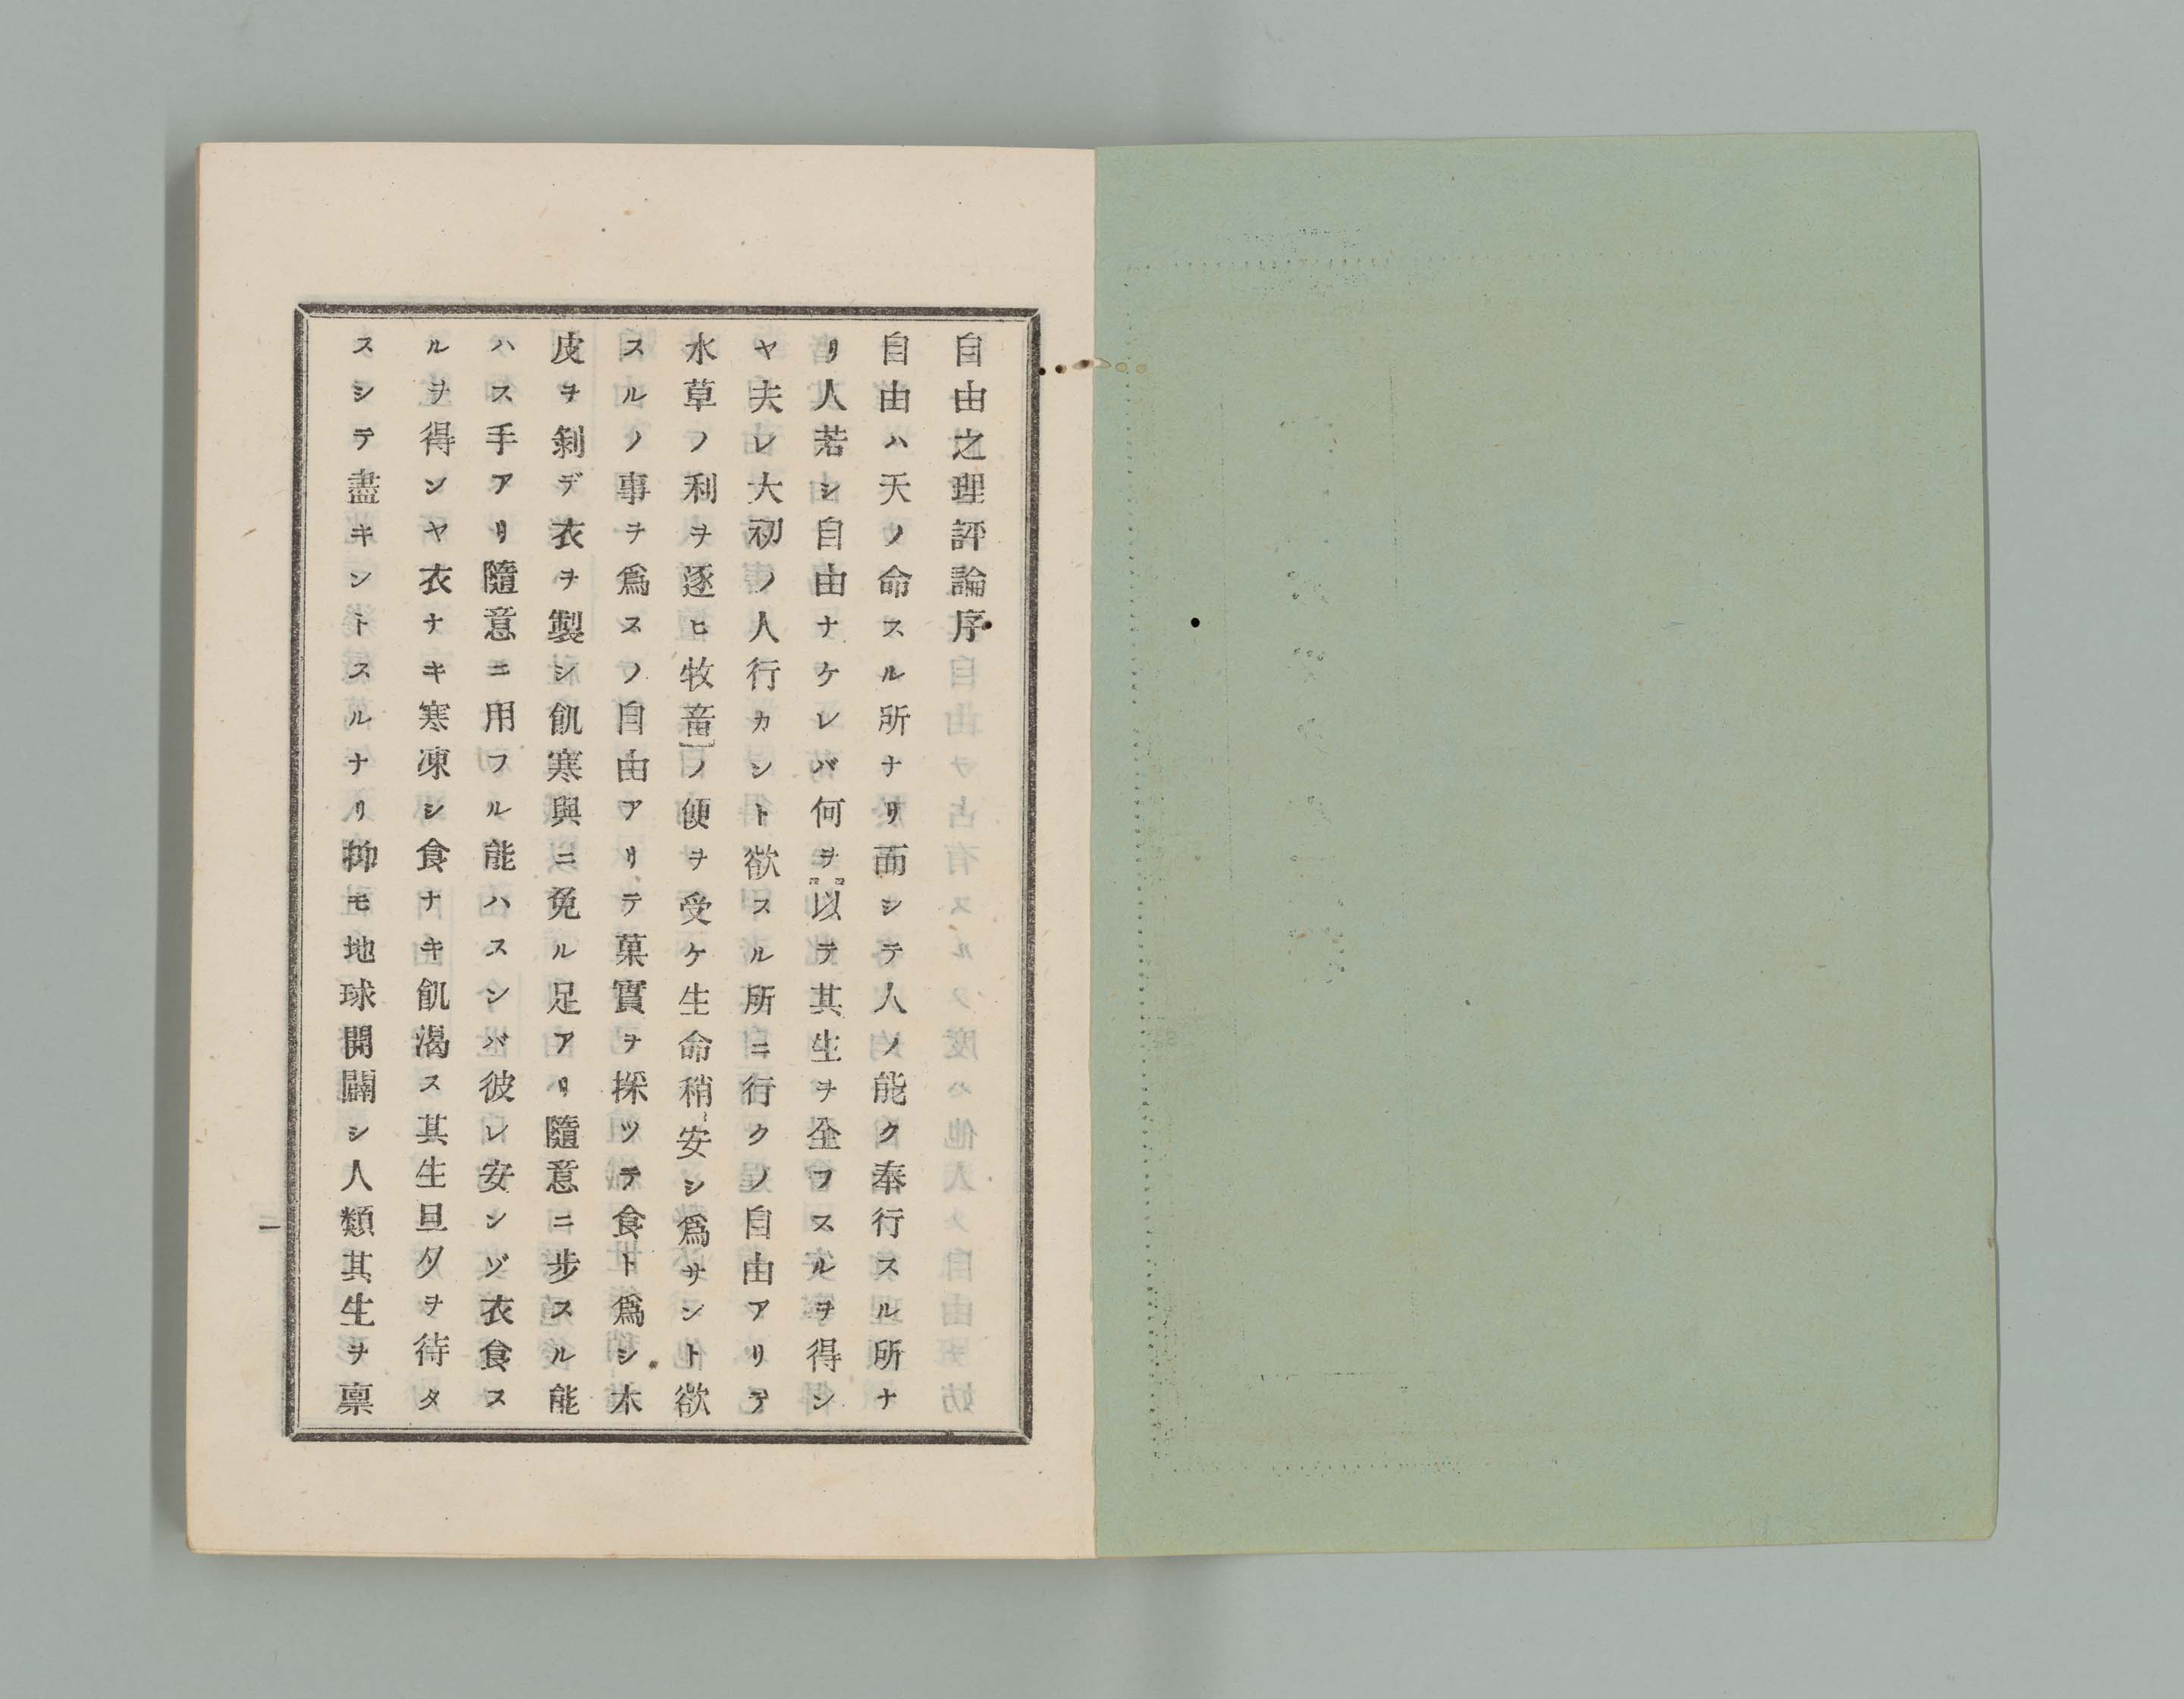 自由之理評論序
自由ハ天ノ命スル所ナリ而シテ人ノ能ク奉行スル所ナ
リ人若シ自由ナケレバ何ヲ以テ其生ヲ全フスルヲ得ン
ヤ夫レ大初ノ人行カント欲スル所ニ行クノ自由アリテ
水草ノ利ヲ逐ヒ牧畜ノ便ヲ受ケ生命稍安シ爲サント欲
スルノ事ヲ爲スノ自由アリテ菓實ヲ採ツテ食ト爲シ木
皮ヲ剝デ衣ヲ製シ飢寒與ニ免ル足アリ隨意ニ步スル能
ハス手アリ隨意ニ用フル能ハスンバ彼レ安ンゾ衣食ス
ルヲ得ンヤ衣ナキ寒凍シ食ナキ飢渴ス其生旦夕ヲ待タ
スシテ盡キントスルナリ抑モ地球開闢シ人類其生ヲ稟
一